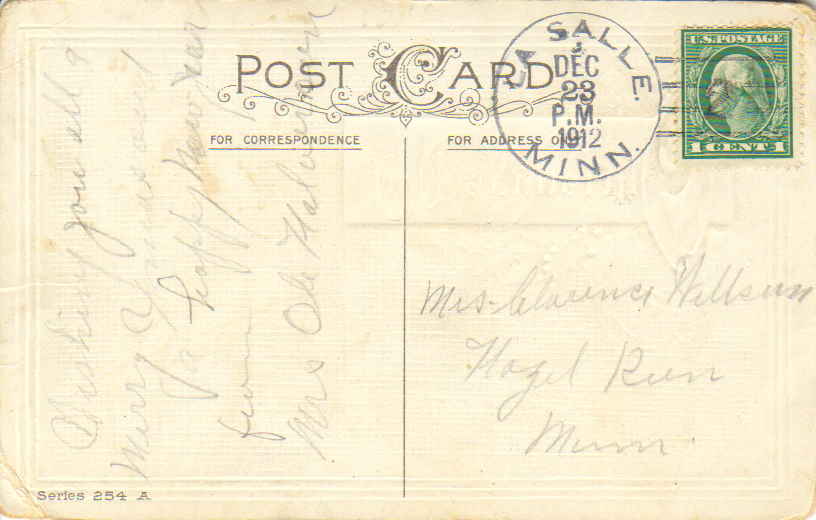 POST CARD
FOR CORRESPONDENCE
FOR ADDRESS ONLY
LA SALLE.
DEC
23
P.M.
1912
MINN.
U.S. POSTAGE
1 CENT 1
Wishing you all a
Merry Xmas and
a happy New Year
from
Mrs Ole Halvorson
Mrs. Clarence Willson
Hazel Run
Minn.
Series 254 A